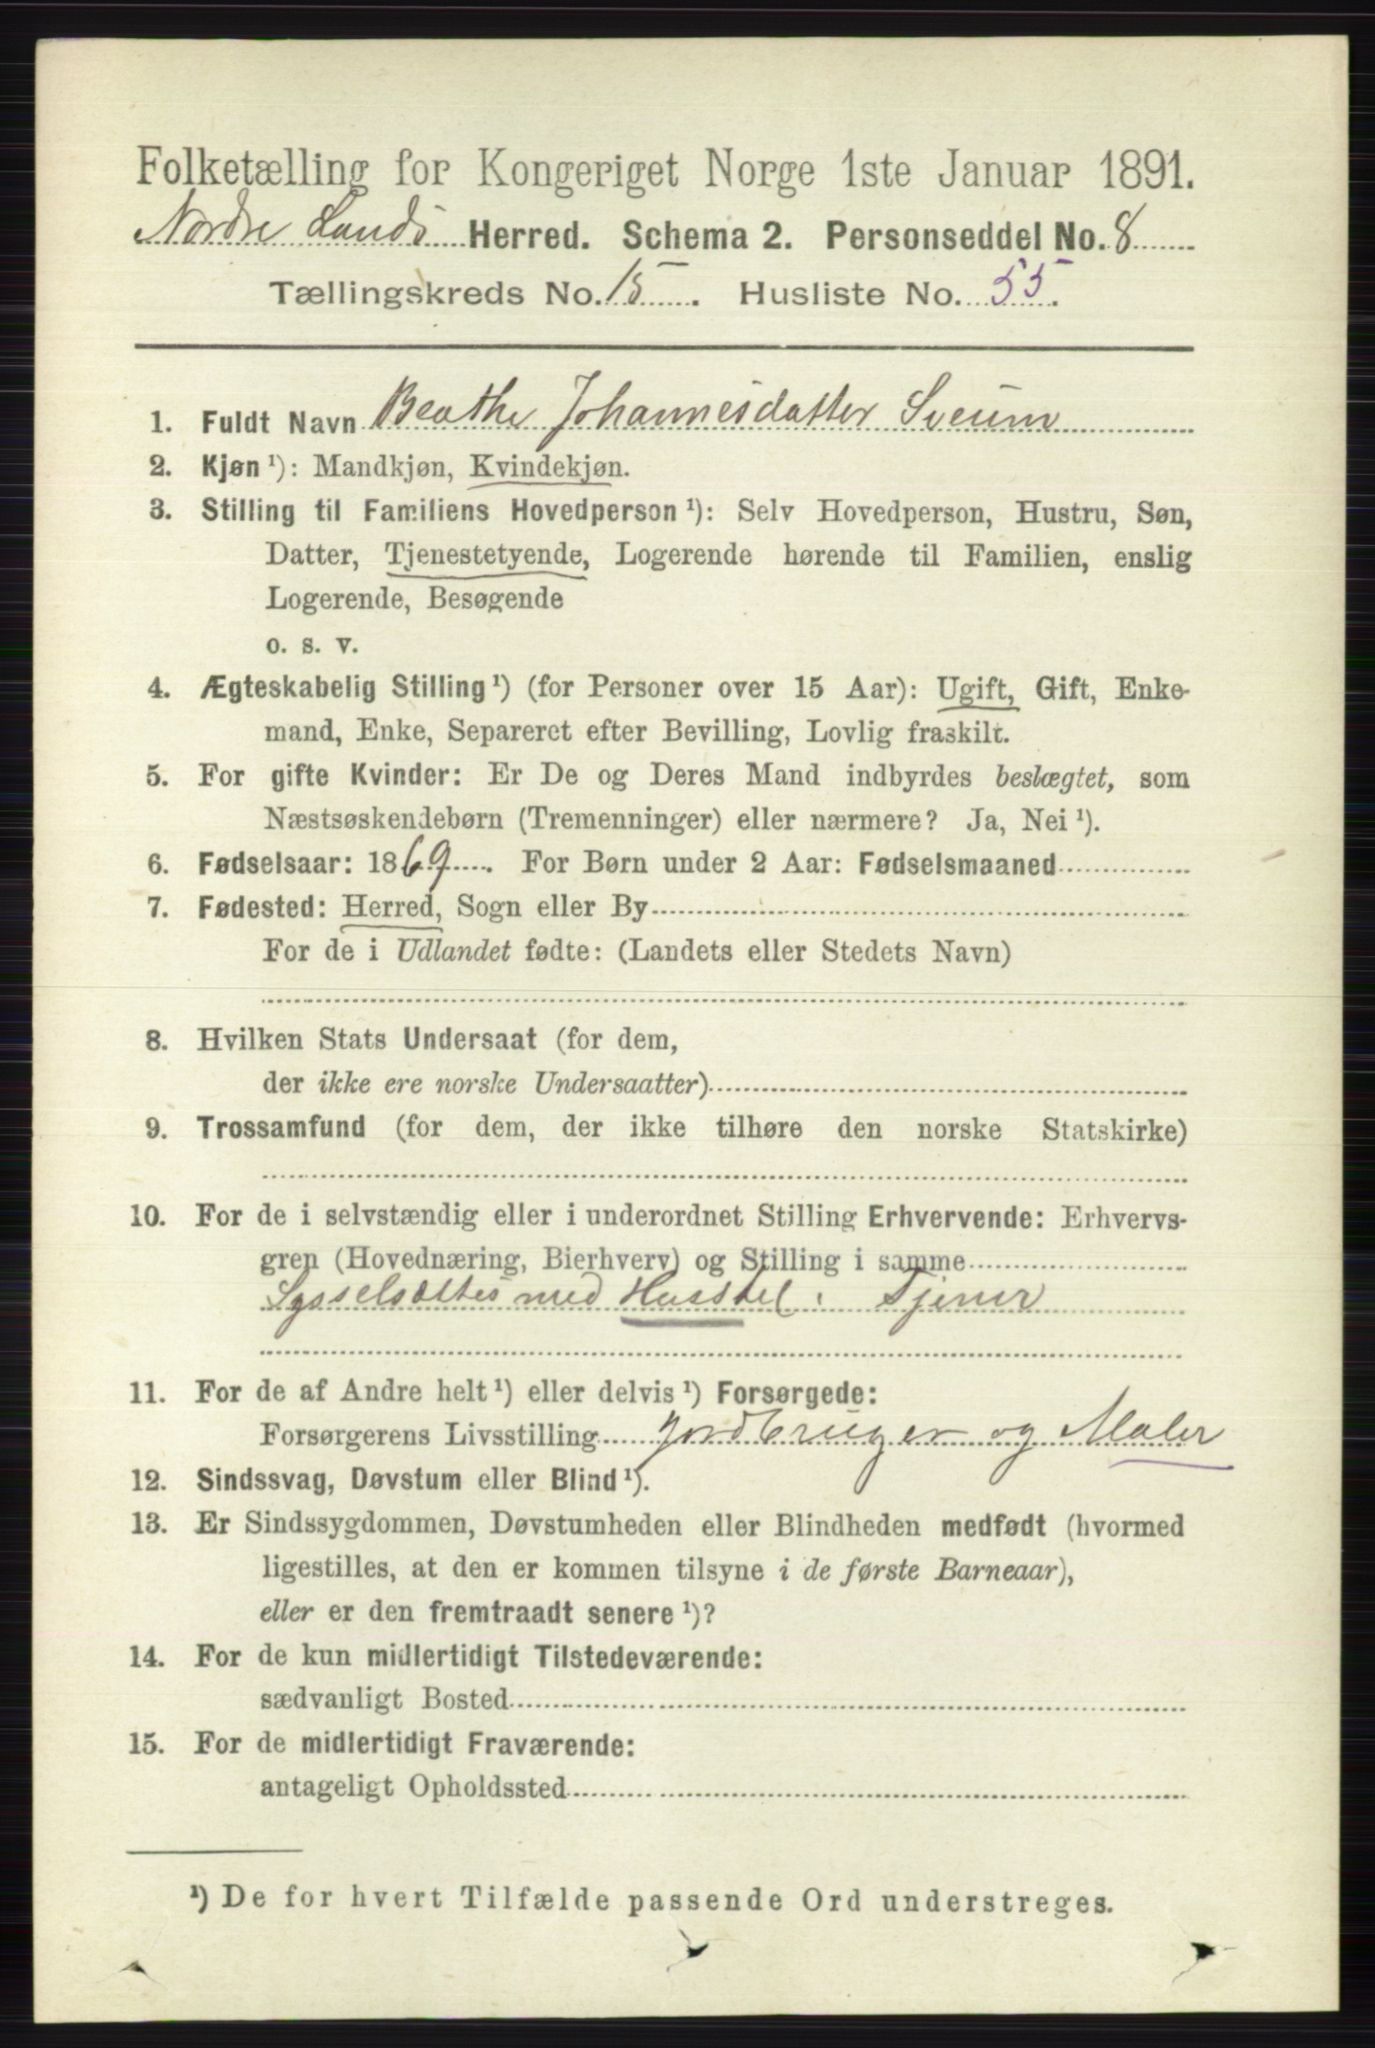 Folketælling for Kongeriget Norge 1ste Januar 1891.
Nordre Lands Herred. Schema 2. Personseddel No. 8
Tællingskreds No. 15. Husliste No. 55.
1. Fuldt Navn Beathe Johannesdatter Sveum
2. Kjøn ¹): Mandkjøn, Kvindekjøn.
3. Stilling til Familiens Hovedperson ¹): Selv Hovedperson, Hustru, Søn,
Datter, Tjenestetyende, Logerende hørende til Familien, enslig
Logerende, Besøgende
o. s. v.
4. Ægteskabelig Stilling ¹) (for Personer over 15 Aar): Ugift, Gift, Enke-
mand, Enke, Separeret efter Bevilling, Lovlig fraskilt.
5. For gifte Kvinder: Er De og Deres Mand indbyrdes beslægtet, som
Næstsøskendebørn (Tremenninger) eller nærmere? Ja, Nei ¹).
6. Fødselsaar: 1869. For Børn under 2 Aar: Fødselsmaaned
7. Fødested: Herred, Sogn eller By
For de i Udlandet fødte: (Landets eller Stedets Navn)
8. Hvilken Stats Undersaat (for dem,
der ikke ere norske Undersaatter)
9. Trossamfund (for dem, der ikke tilhøre den norske Statskirke)
10. For de i selvstændig eller i underordnet Stilling Erhvervende: Erhvervs-
gren (Hovednæring, Bierhverv) og Stilling i samme
Sysselsættes med Husstel. Tjener
11. For de af Andre helt ¹) eller delvis ¹) Forsørgede:
Forsørgerens Livsstilling Jordbruger og Maler
12. Sindssvag, Døvstum eller Blind ¹).
13. Er Sindssygdommen, Døvstumheden eller Blindheden medfødt (hvormed
ligestilles, at den er kommen tilsyne i de første Barneaar),
eller er den fremtraadt senere ¹)?
14. For de kun midlertidigt Tilstedeværende:
sædvanligt Bosted
15. For de midlertidigt Fraværende:
antageligt Opholdssted
¹) De for hvert Tilfælde passende Ord understreges.